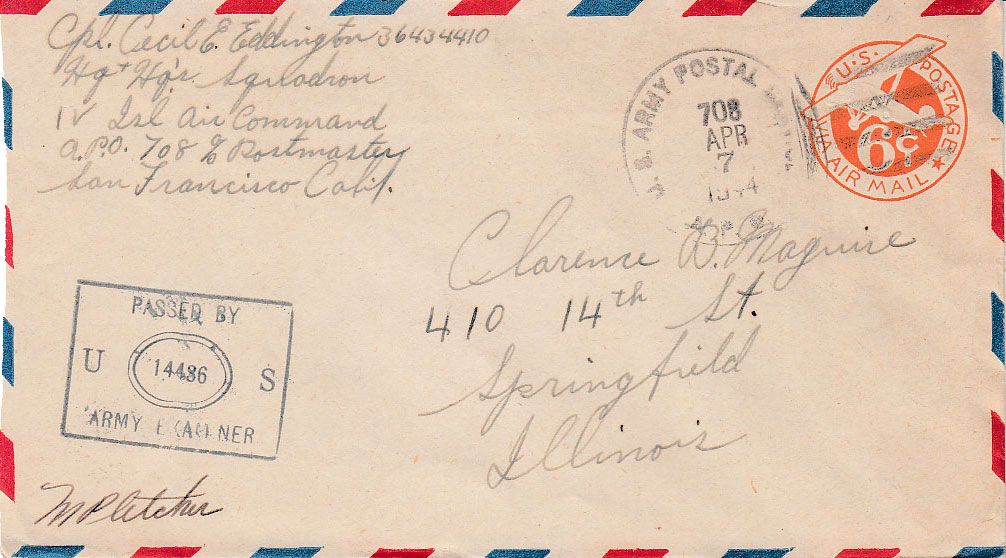 Cpl. Cecil E. Eddington 36434410
Hq + Hq's. Squadron
IV Isl Air Command
A.P.O. 708 c/o Postmaster
San Francisco Calif.
U.S. ARMY POSTAL
708
APR
7
1944
U.S. POSTAGE
6¢
VIA AIR MAIL
Clarence B. Maguire
410 14th St.
Springfield
Illinois
PASSED BY
U 14486 S
ARMY EXAMINER